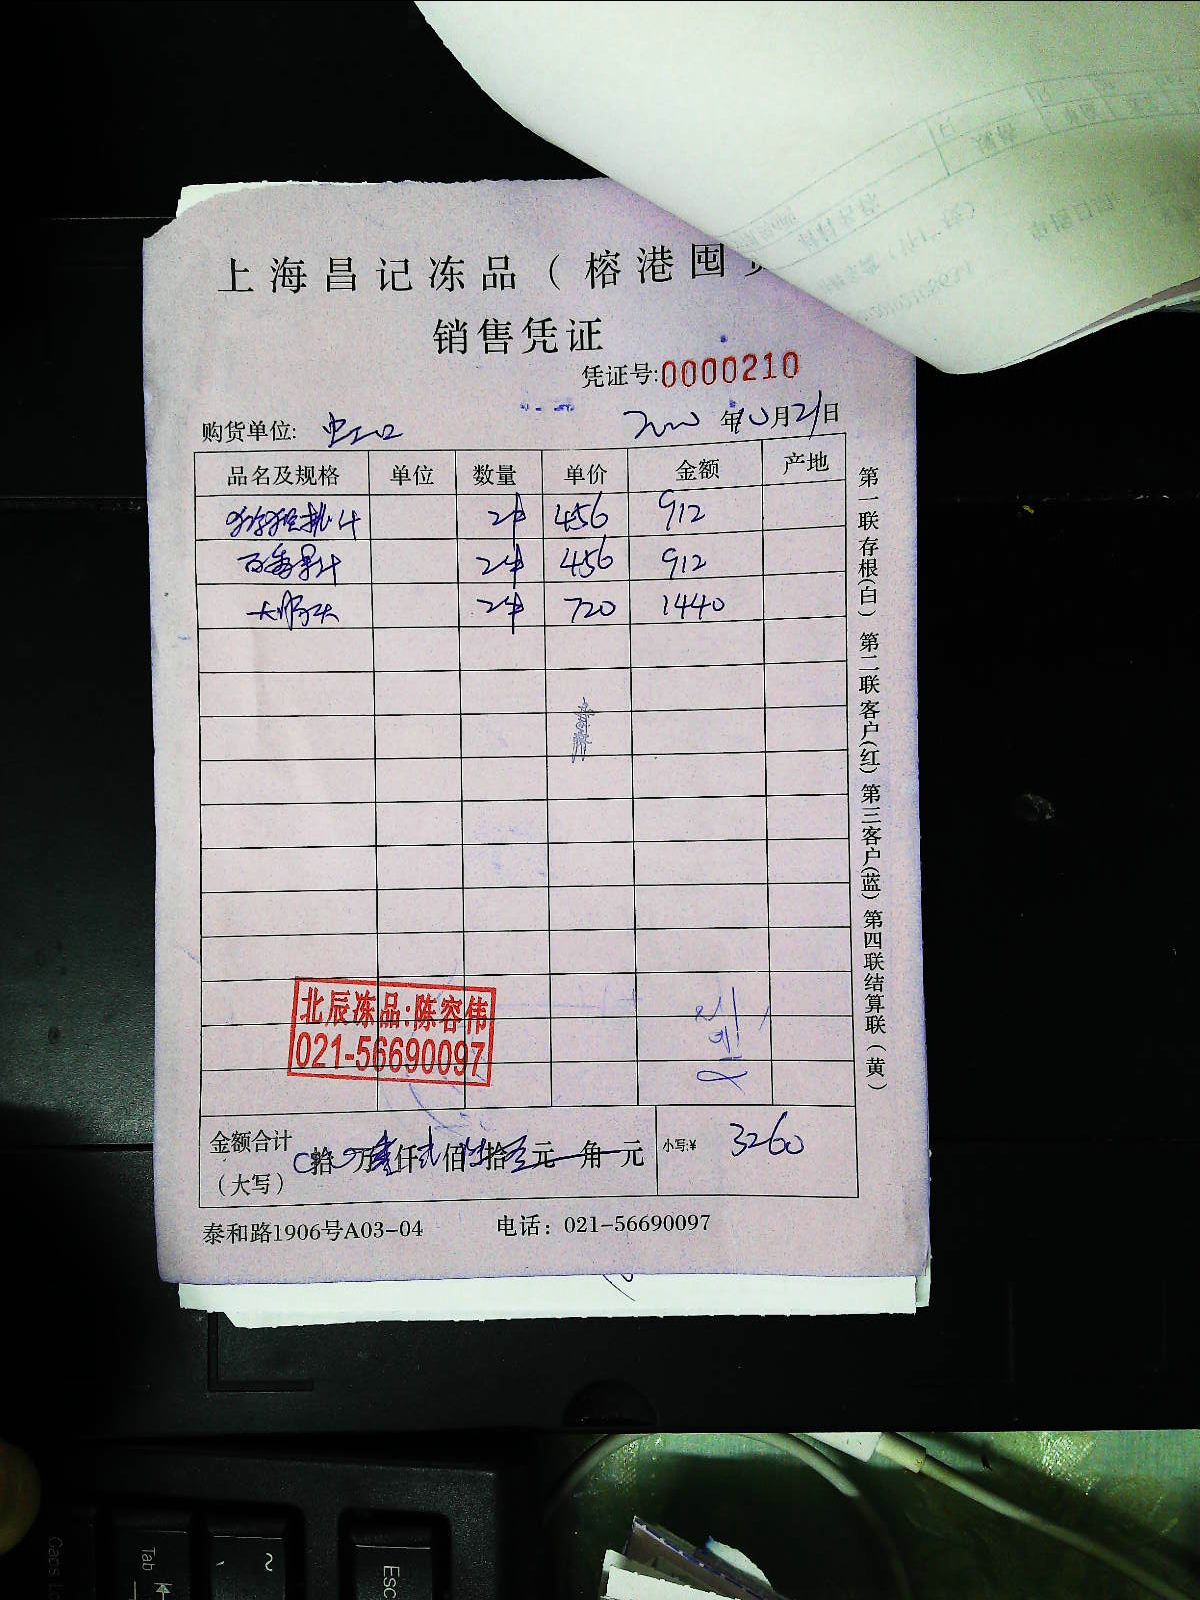 上海昌记冻品（榕港囤
销售凭证
凭证号:0000210
购货单位: 虹口 年10月21日
品名及规格 单位 数量 单价 金额 产地
猕猴桃汁 2件 456 912
百香果汁 2件 456 912
2件 720 1440
北辰冻品:陈容伟
021-56690097
金额合计 拾 万 仟 佰 拾 元 角 元 小写:¥ 3260
（大写）
泰和路1906号A03-04 电话：021-56690097
第一联存根(白) 第二联客户(红) 第三客户(蓝) 第四联结算联(黄)
Tab
~
Esc